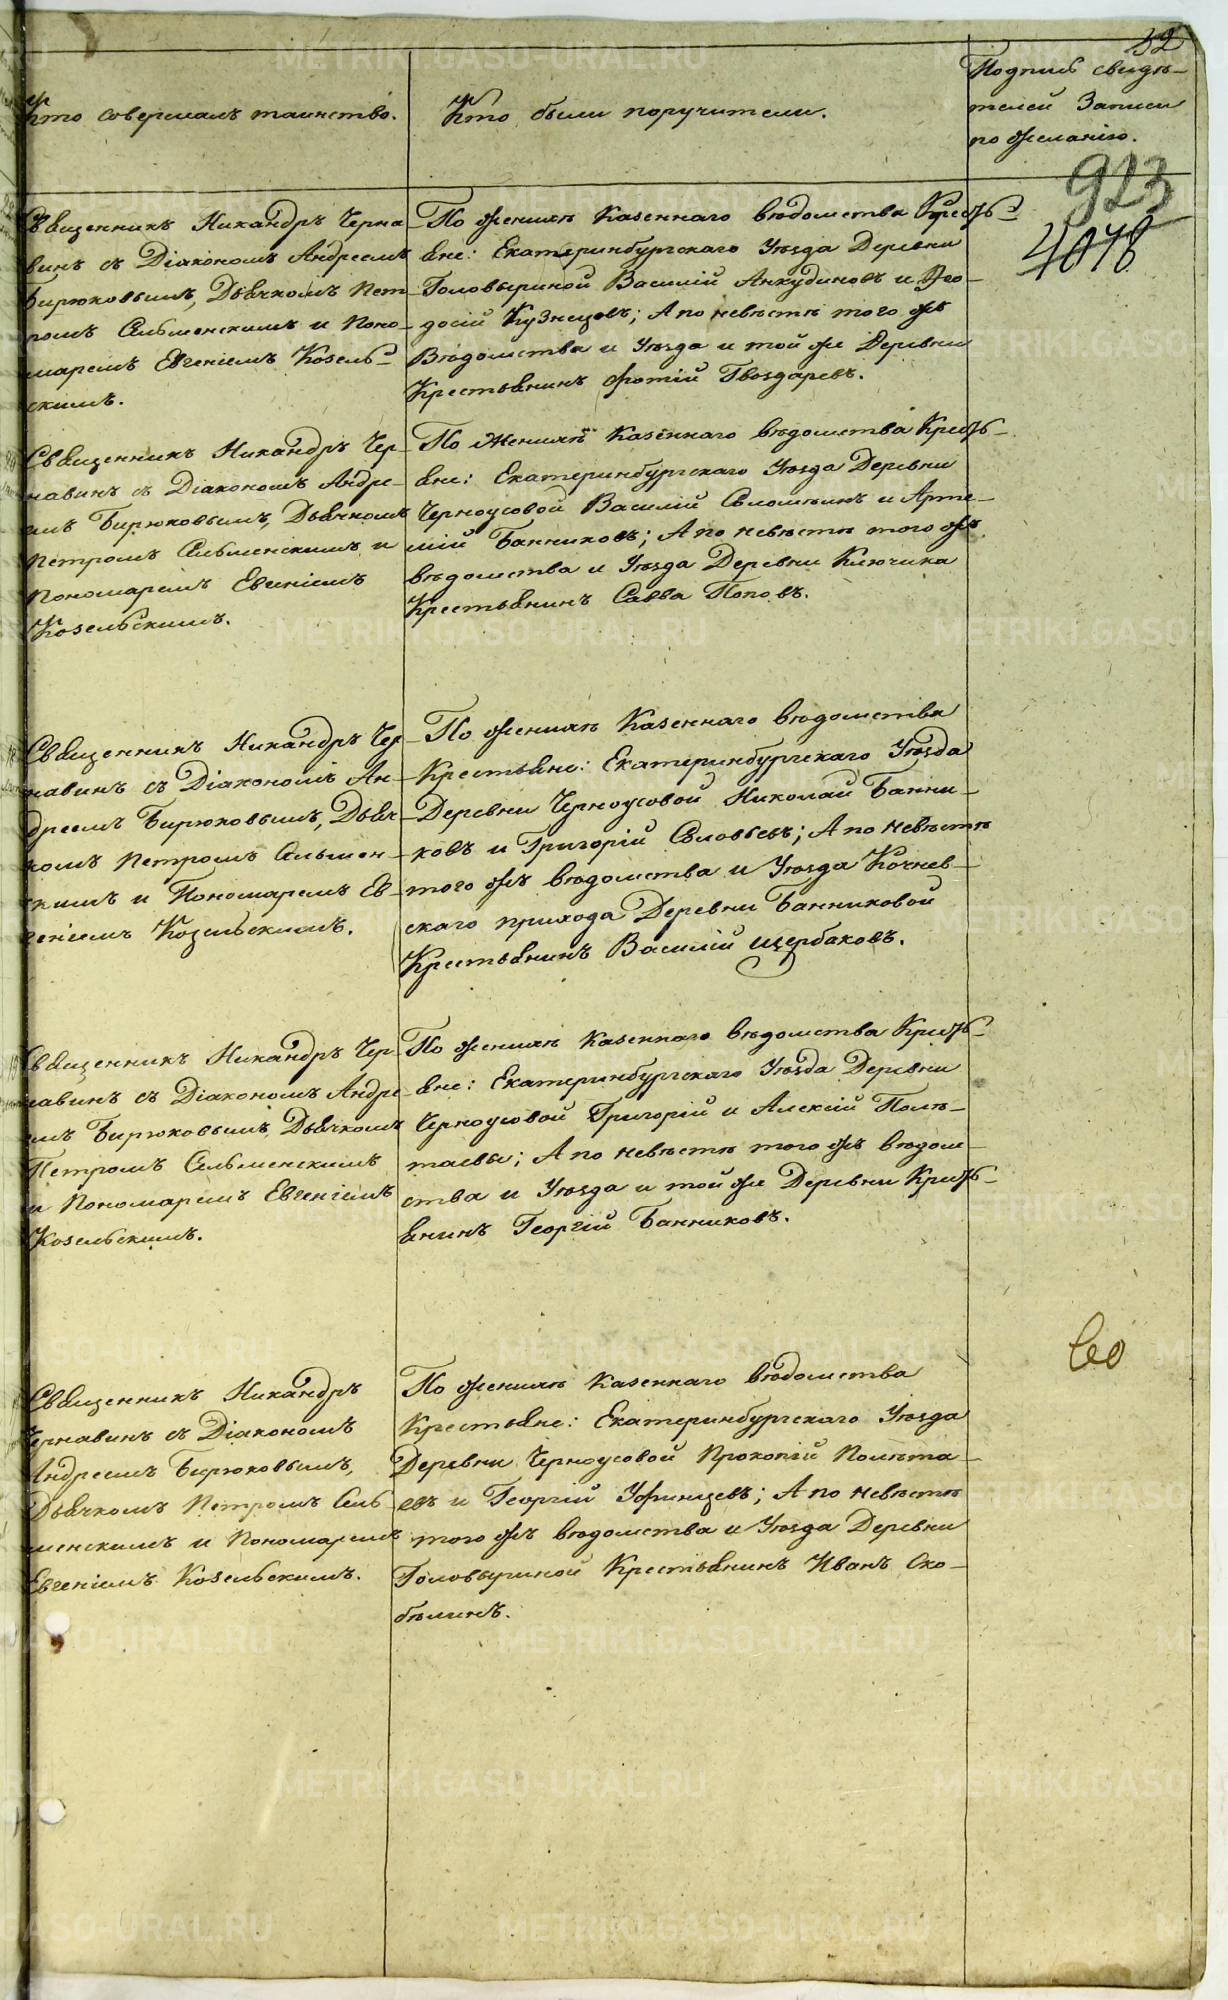 52
Кто совершалъ таинство.
Кто были поручители.
Подпись свидѣ-
телей Записи
по желанію.
923
4078
Священникъ Никандръ Черна-
винъ съ Діакономъ Андреемъ
Бирюковымъ, Дьячкомъ Пет-
ромъ Сельменскимъ и Поно-
маремъ Евгеніемъ Козель-
скимъ.
По женихѣ Казеннаго вѣдомства Кресть-
яне: Екатеринбургскаго Уѣзда Деревни
Головыриной Василій Анкудиновъ и Ѳео-
досій Кузнецовъ; А по невѣстѣ того жъ
Вѣдомства и Уѣзда и той же Деревни
Крестьянинъ Фотій Гвоздаревъ.
Священникъ Никандръ Чер-
навинъ съ Діакономъ Андре-
емъ Бирюковымъ, Дьячкомъ
Петромъ Сельменскимъ и
Пономаремъ Евгеніемъ
Козельскимъ.
По Женихѣ Казеннаго вѣдомства Кресть-
яне: Екатеринбургскаго Уѣзда Деревни
Черноусовой Василій Соломѣинъ и Арте-
мій Банниковъ; А по невѣстѣ того жъ
вѣдомства и Уѣзда Деревни Ключика
Крестьянинъ Савва Поповъ.
Священникъ Никандръ Чер-
навинъ съ Діакономъ Ан-
дреемъ Бирюковымъ, Дьяч-
комъ Петромъ Сельмен-
скимъ и Пономаремъ Ев-
геніемъ Козельскимъ.
По женихѣ Казеннаго вѣдомства
Крестьяне: Екатеринбургскаго Уѣзда
Деревни Черноусовой Николай Банни-
ковъ и Григорій Соловьевъ; А по невѣстѣ
того жъ вѣдомства и Уѣзда Кочнев-
скаго прихода Деревни Банниковой
Крестьянинъ Василій Щербаковъ.
Священникъ Никандръ Чер-
навинъ съ Діакономъ Андре-
емъ Бирюковымъ, Дьячкомъ
Петромъ Сельменскимъ
и Пономаремъ Евгеніемъ
Козельскимъ.
По женихѣ Казеннаго вѣдомства Кресть-
яне: Екатеринбургскаго Уѣзда Деревни
Черноусовой Григорій и Алексій Полѣ-
таевы; А по невѣстѣ того жъ вѣдом-
ства и Уѣзда и той же Деревни Кресть-
янинъ Георгій Банниковъ.
Священникъ Никандръ
Чернавинъ съ Діакономъ
Андреемъ Бирюковымъ,
Дьячкомъ Петромъ Сель-
менскимъ и Пономаремъ
Евгеніемъ Козельскимъ.
По женихѣ Казеннаго вѣдомства
Крестьяне: Екатеринбургскаго Уѣзда
Деревни Черноусовой Прокопій Полѣта-
евъ и Георгій Уфинцевъ; А по невѣстѣ
того жъ вѣдомства и Уѣзда Деревни
Головыриной Крестьянинъ Иванъ Ско-
бѣлинъ.